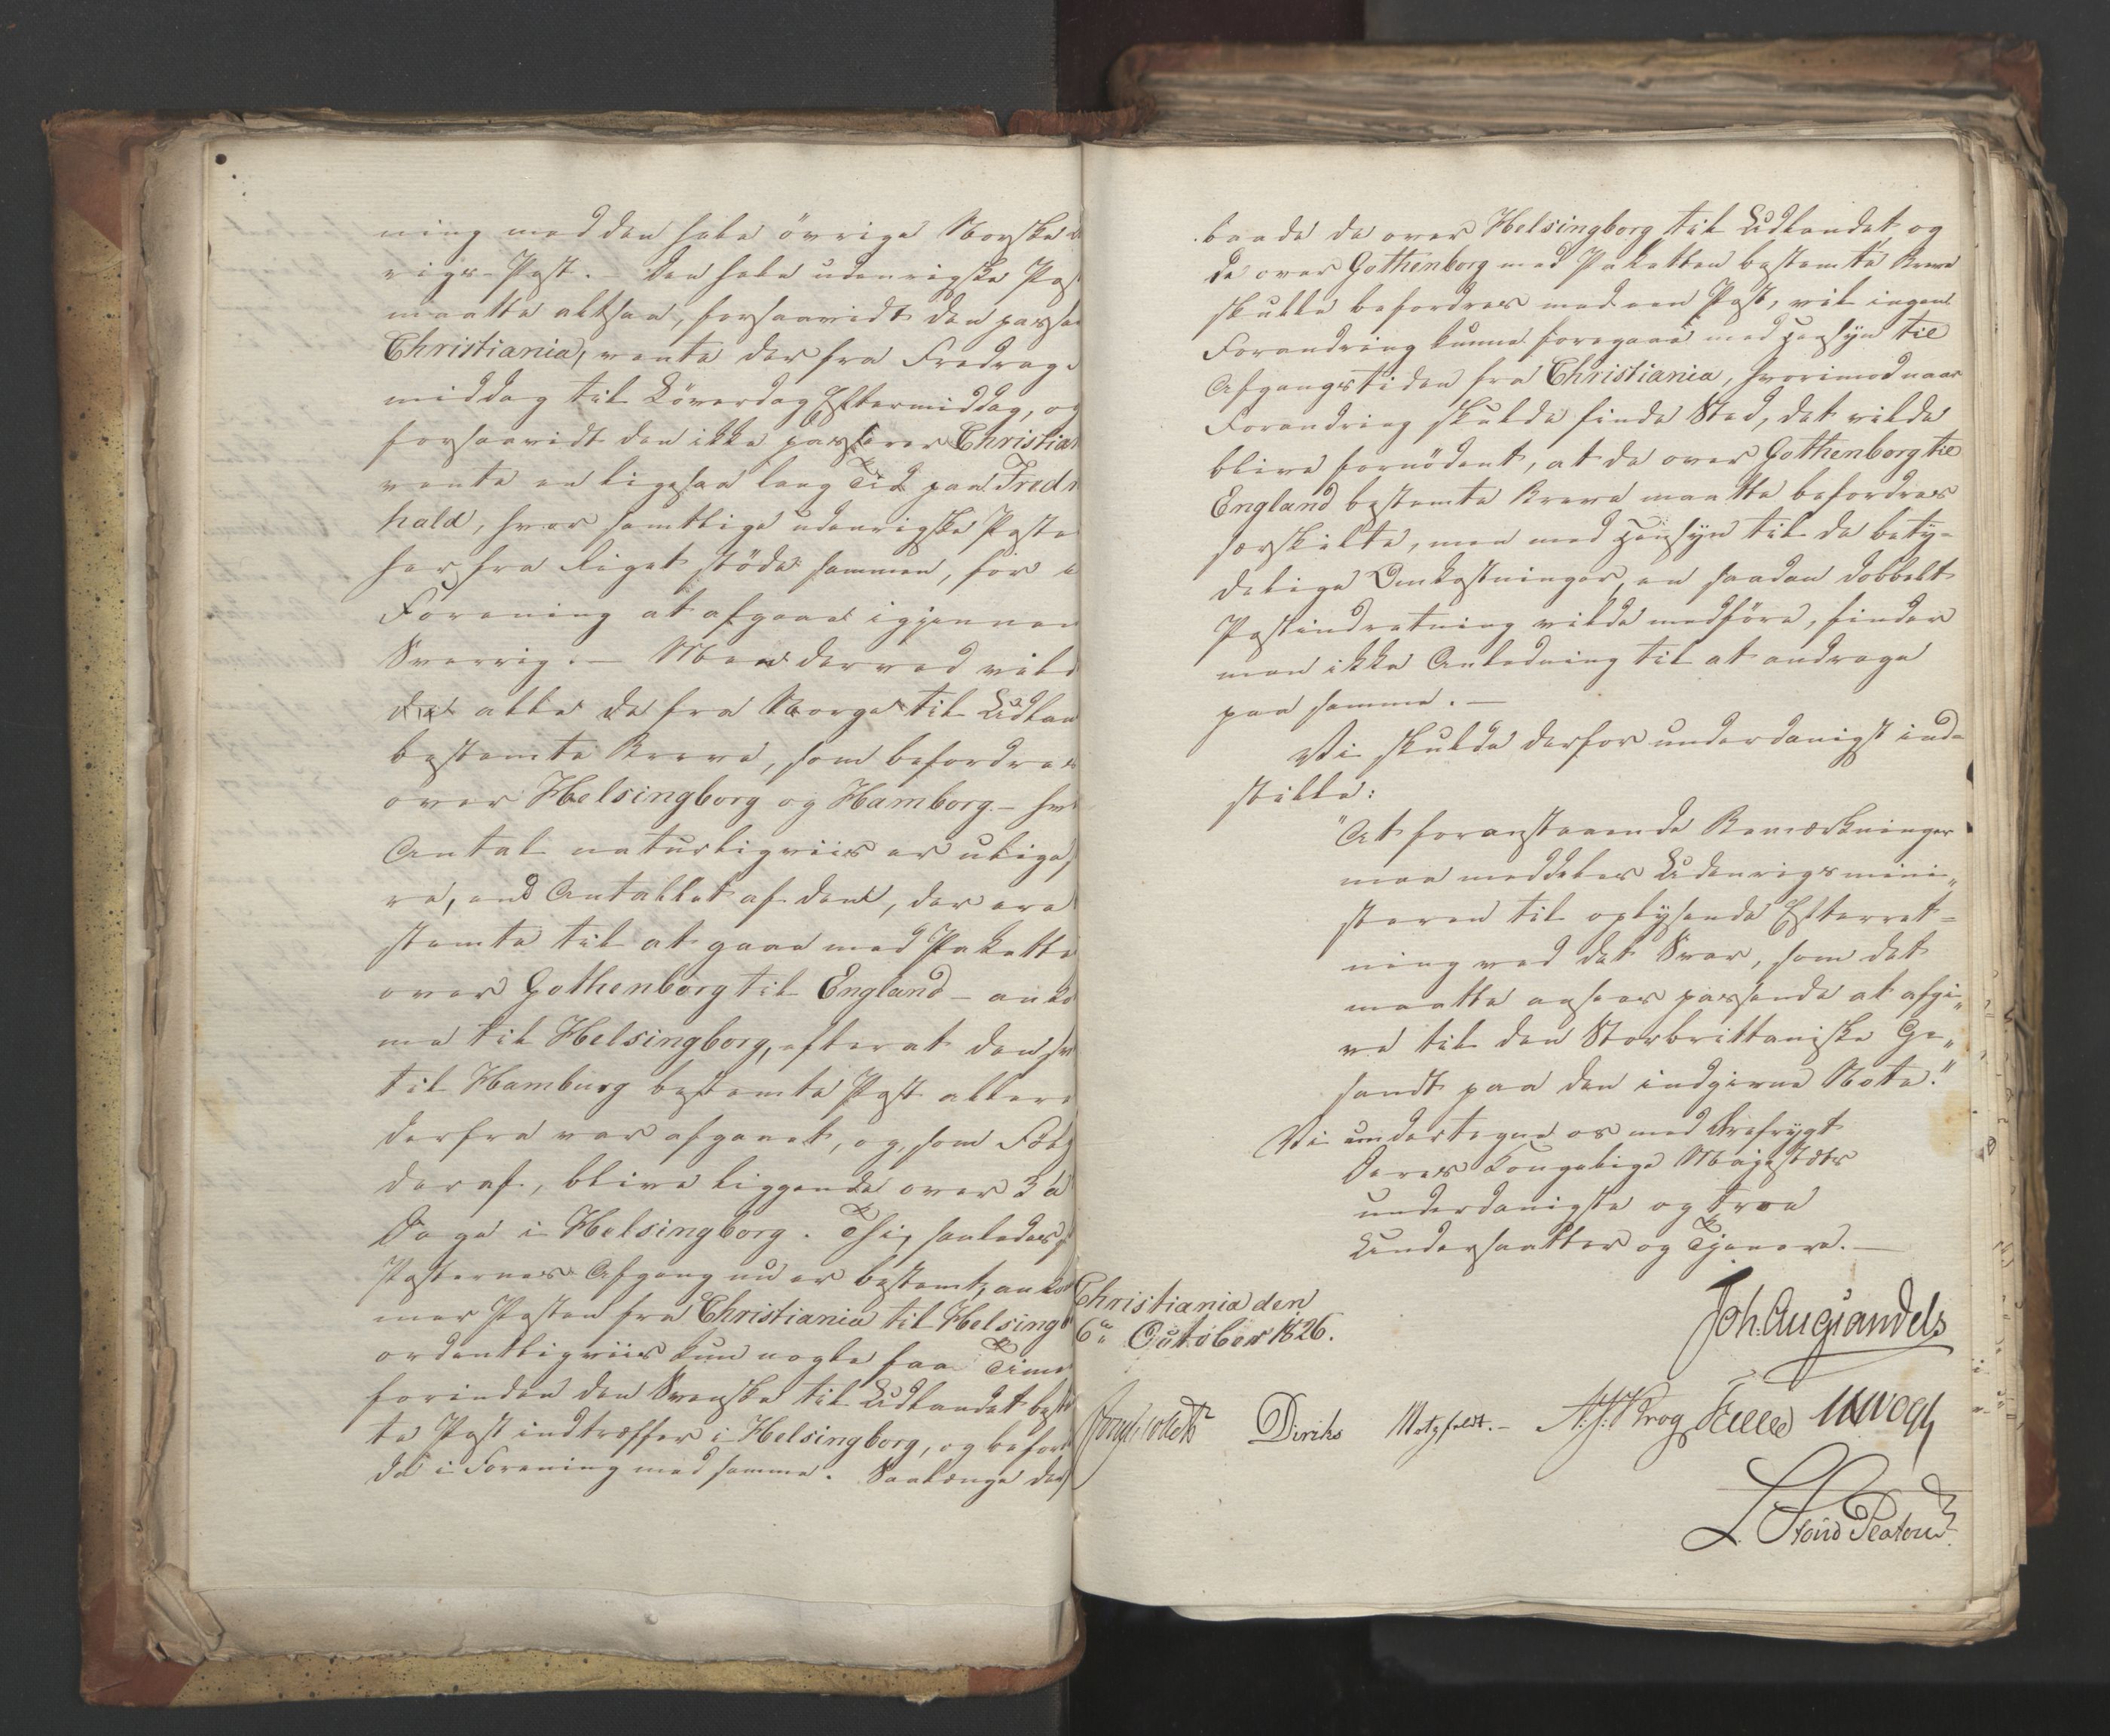 ning med den hele övrige Norske 
rigs-Post. – Den hele udenrigske Pos
maatte altsaa, forsaavidt den passe
Christiania, vente der fra Fredag
middag til Löverdag Eftermiddag, og
forsaavidt den ikke passerer Christian
vente en ligesaa lang Tid paa Fredr
hald, hvor samtlige udenrigske Poste
her fra Riget støde sammen, for i
Forening at afgaae igjennem
Sverrig. – Men derved vild
alle de fra Norge til Udlan
bestemte Breve, som befordres
over Helsingborg og Hamborg – hvi
Antal naturligviis er ulige
re, end Antallet af dem, der ere
stemte til at gaae med Pakette
over Gothenborg til England – anko
me til Helsingborg, efterat den 
til Hamburg bestemte Post allere
derfra var afgaaet, og, som Fölg
deraf, blive liggende over 3 a
Dage i Helsingborg. Thi, saaledes 
Posternes Afgang nu er bestemt, anko
mer Posten fra Christiania til Helsingb
ordentligviis kun nogle faa Time
forinden den Svenske til Udlandet beste
te Post indtræffer i Helsingborg, og befor
de i Forening med samme. Saalænge der
baade de over Helsingborg til Udlandet og
de over Gothenborg med Paketten bestemte Breve
skulle befordres med een Post, vil ingen
Forandring kunne foregaae med Hensyn til
Afgangstiden fra Christiania, hvorimod naar
Forandring skulde finde Sted, det vilde
blive fornödent, at de over Gothenborg til
England bestemte Breve maatte befordres
særskilte, men med Hensyn til de bety-
delige Omkostninger, en saadan dobbelt
Postindretning vilde medföre, finder
man ikke Anledning til at andrage
paa samme. –
Vi skulde derfor underdanigst ind-
stille:
"At foranstaaende Bemærkninger
maa meddeles Udenrigsmini-
steren til oplysende Efterret-
ning ved det Svar, som det
maatte ansees passende at afgi-
ve til den Storbrittaniske Ge-
sandt paa den indgivne Note."
Vi undertegne os med Ærefrygt
Deres Kongelige Majestæts
underdanigste og troe
Undersaatter og Tjenere. –
Christiania den
6te October 1826.
Joh. Aug Sandels
Diriks Motzfeldt. – Krog Fasting
L. Stoud Platou